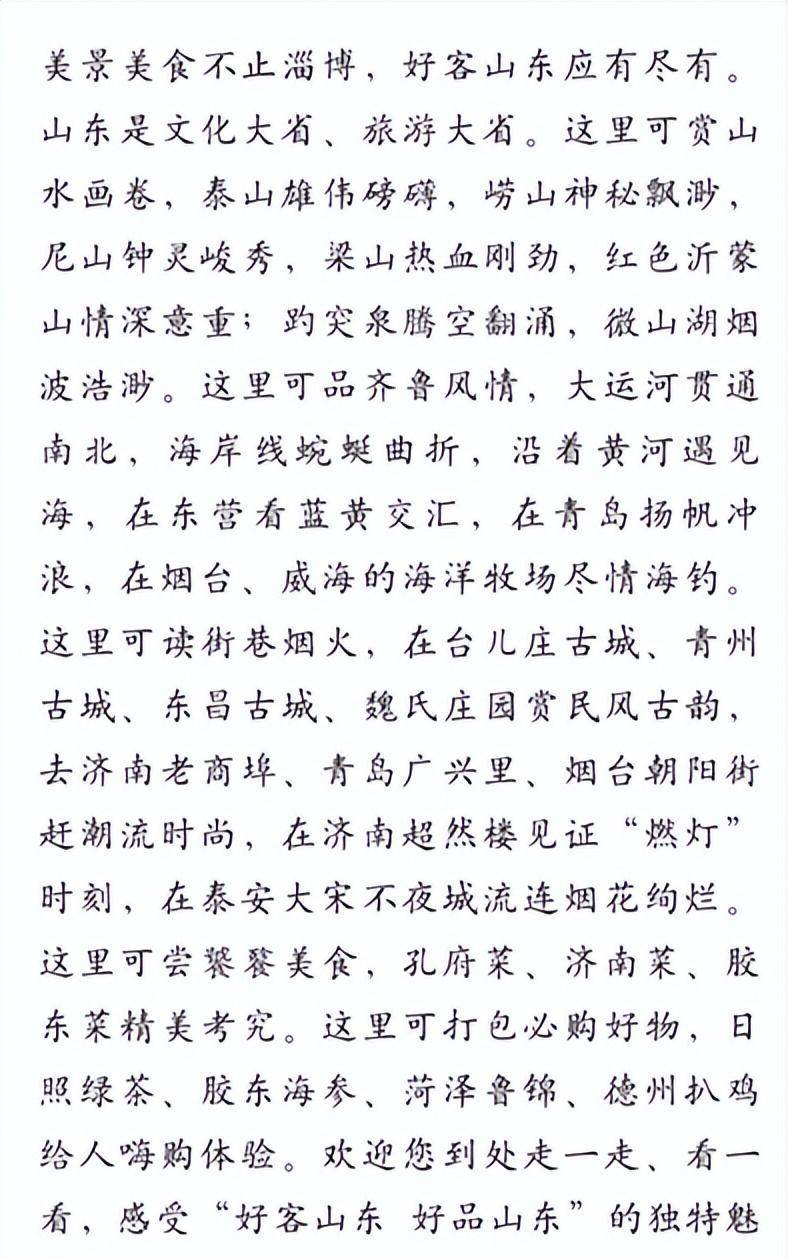 美景美食不止淄博，好客山东应有尽有。
山东是文化大省、旅游大省。这里可赏山
水画卷，泰山雄伟磅礴，崂山神秘飘渺，
尼山钟灵峻秀，梁山热血刚劲，红色沂蒙
山情深意重；趵突泉腾空翻涌，微山湖烟
波浩渺。这里可品齐鲁风情，大运河贯通
南北，海岸线蜿蜒曲折，沿着黄河遇见
海，在东营看蓝黄交汇，在青岛扬帆冲
浪，在烟台、威海的海洋牧场尽情海钓。
这里可读街巷烟火，在台儿庄古城、青州
古城、东昌古城、魏氏庄园赏民风古韵，
去济南老商埠、青岛广兴里、烟台朝阳街
赶潮流时尚，在济南超然楼见证“燃灯”
时刻，在泰安大宋不夜城流连烟花绚烂。
这里可尝饕餮美食，孔府菜、济南菜、胶
东菜精美考究。这里可打包必购好物，日
照绿茶、胶东海参、菏泽鲁锦、德州扒鸡
给人嗨购体验。欢迎您到处走一走、看一
看，感受“好客山东 好品山东”的独特魅